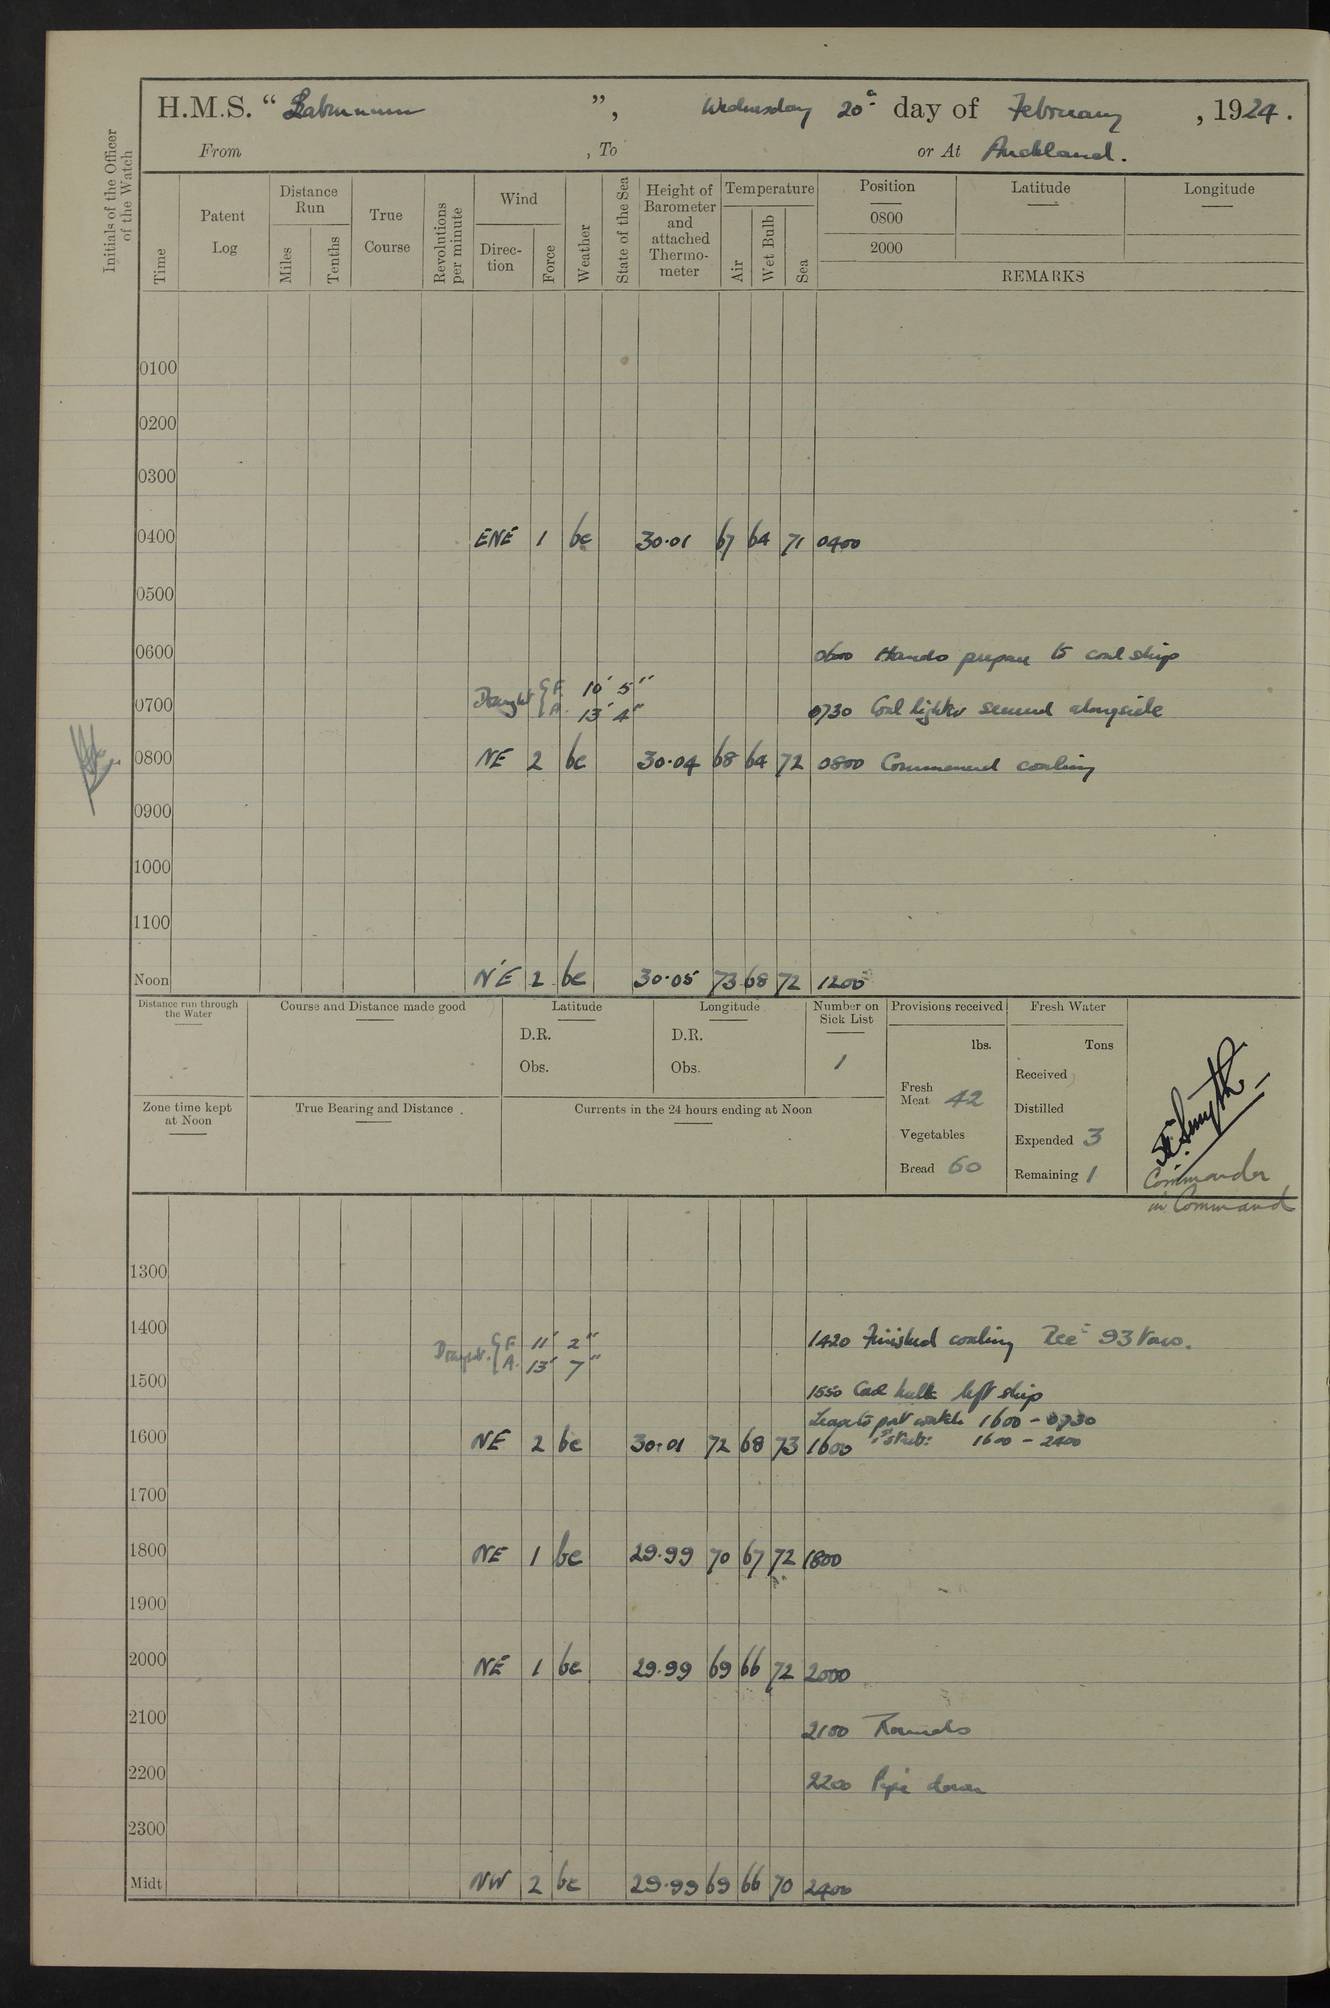 H.M.S. “ Laburnum ”, Wednesday 20th day of February , 1924.
From , To or At Auckland.
Initials of the Officer of the Watch
Time
Patent Log
Distance Run
Miles
Tenths
True Course
Revolutions per minute
Wind
Direc-tion
Force
Weather
State of the Sea
Height of Barometer and attached Thermo-meter
Temperature
Air
Wet Bulb
Sea
Position
0800
2000
Latitude
Longitude
REMARKS
0100
0200
0300
0400 ENE 1 bc 30.01 67 64 71 0400
0500
0600 0600 Hands prepare to coal ship
Draught { F. 10' 5"
0700 A. 13' 4" 0730 Coal lighter secured alongside
0800 NE 2 bc 30.04 68 64 72 0800 Commenced coaling
0900
1000
1100
Noon NE 2 bc 30.05 73 68 72 1200
Distance run through the Water
Course and Distance made good
Latitude
D.R.
Obs.
Longitude
D.R.
Obs.
Number on Sick List
1
Provisions received
lbs.
Fresh Meat 42
Vegetables
Bread 60
Fresh Water
Tons
Received
Distilled
Expended 3
Remaining 1
Smyth
Commander
in Command
Zone time kept at Noon
True Bearing and Distance .
Currents in the 24 hours ending at Noon
1300
1400 Draught { F. 11' 2" 1420 Finished coaling Recd 93 tons.
A. 13' 7"
1500 1550 Coal hulk left ship
Leave to port watch 1600 - 0730
1600 NE 2 bc 30.01 72 68 73 1600 1600 - 2400
1700
1800 NE 1 bc 29.99 70 67 72 1800
1900
2000 NE 1 bc 29.99 69 66 72 2000
2100 2100 Rounds
2200 2200 Pipe down
2300
Midt NW 2 bc 29.99 69 66 70 2400